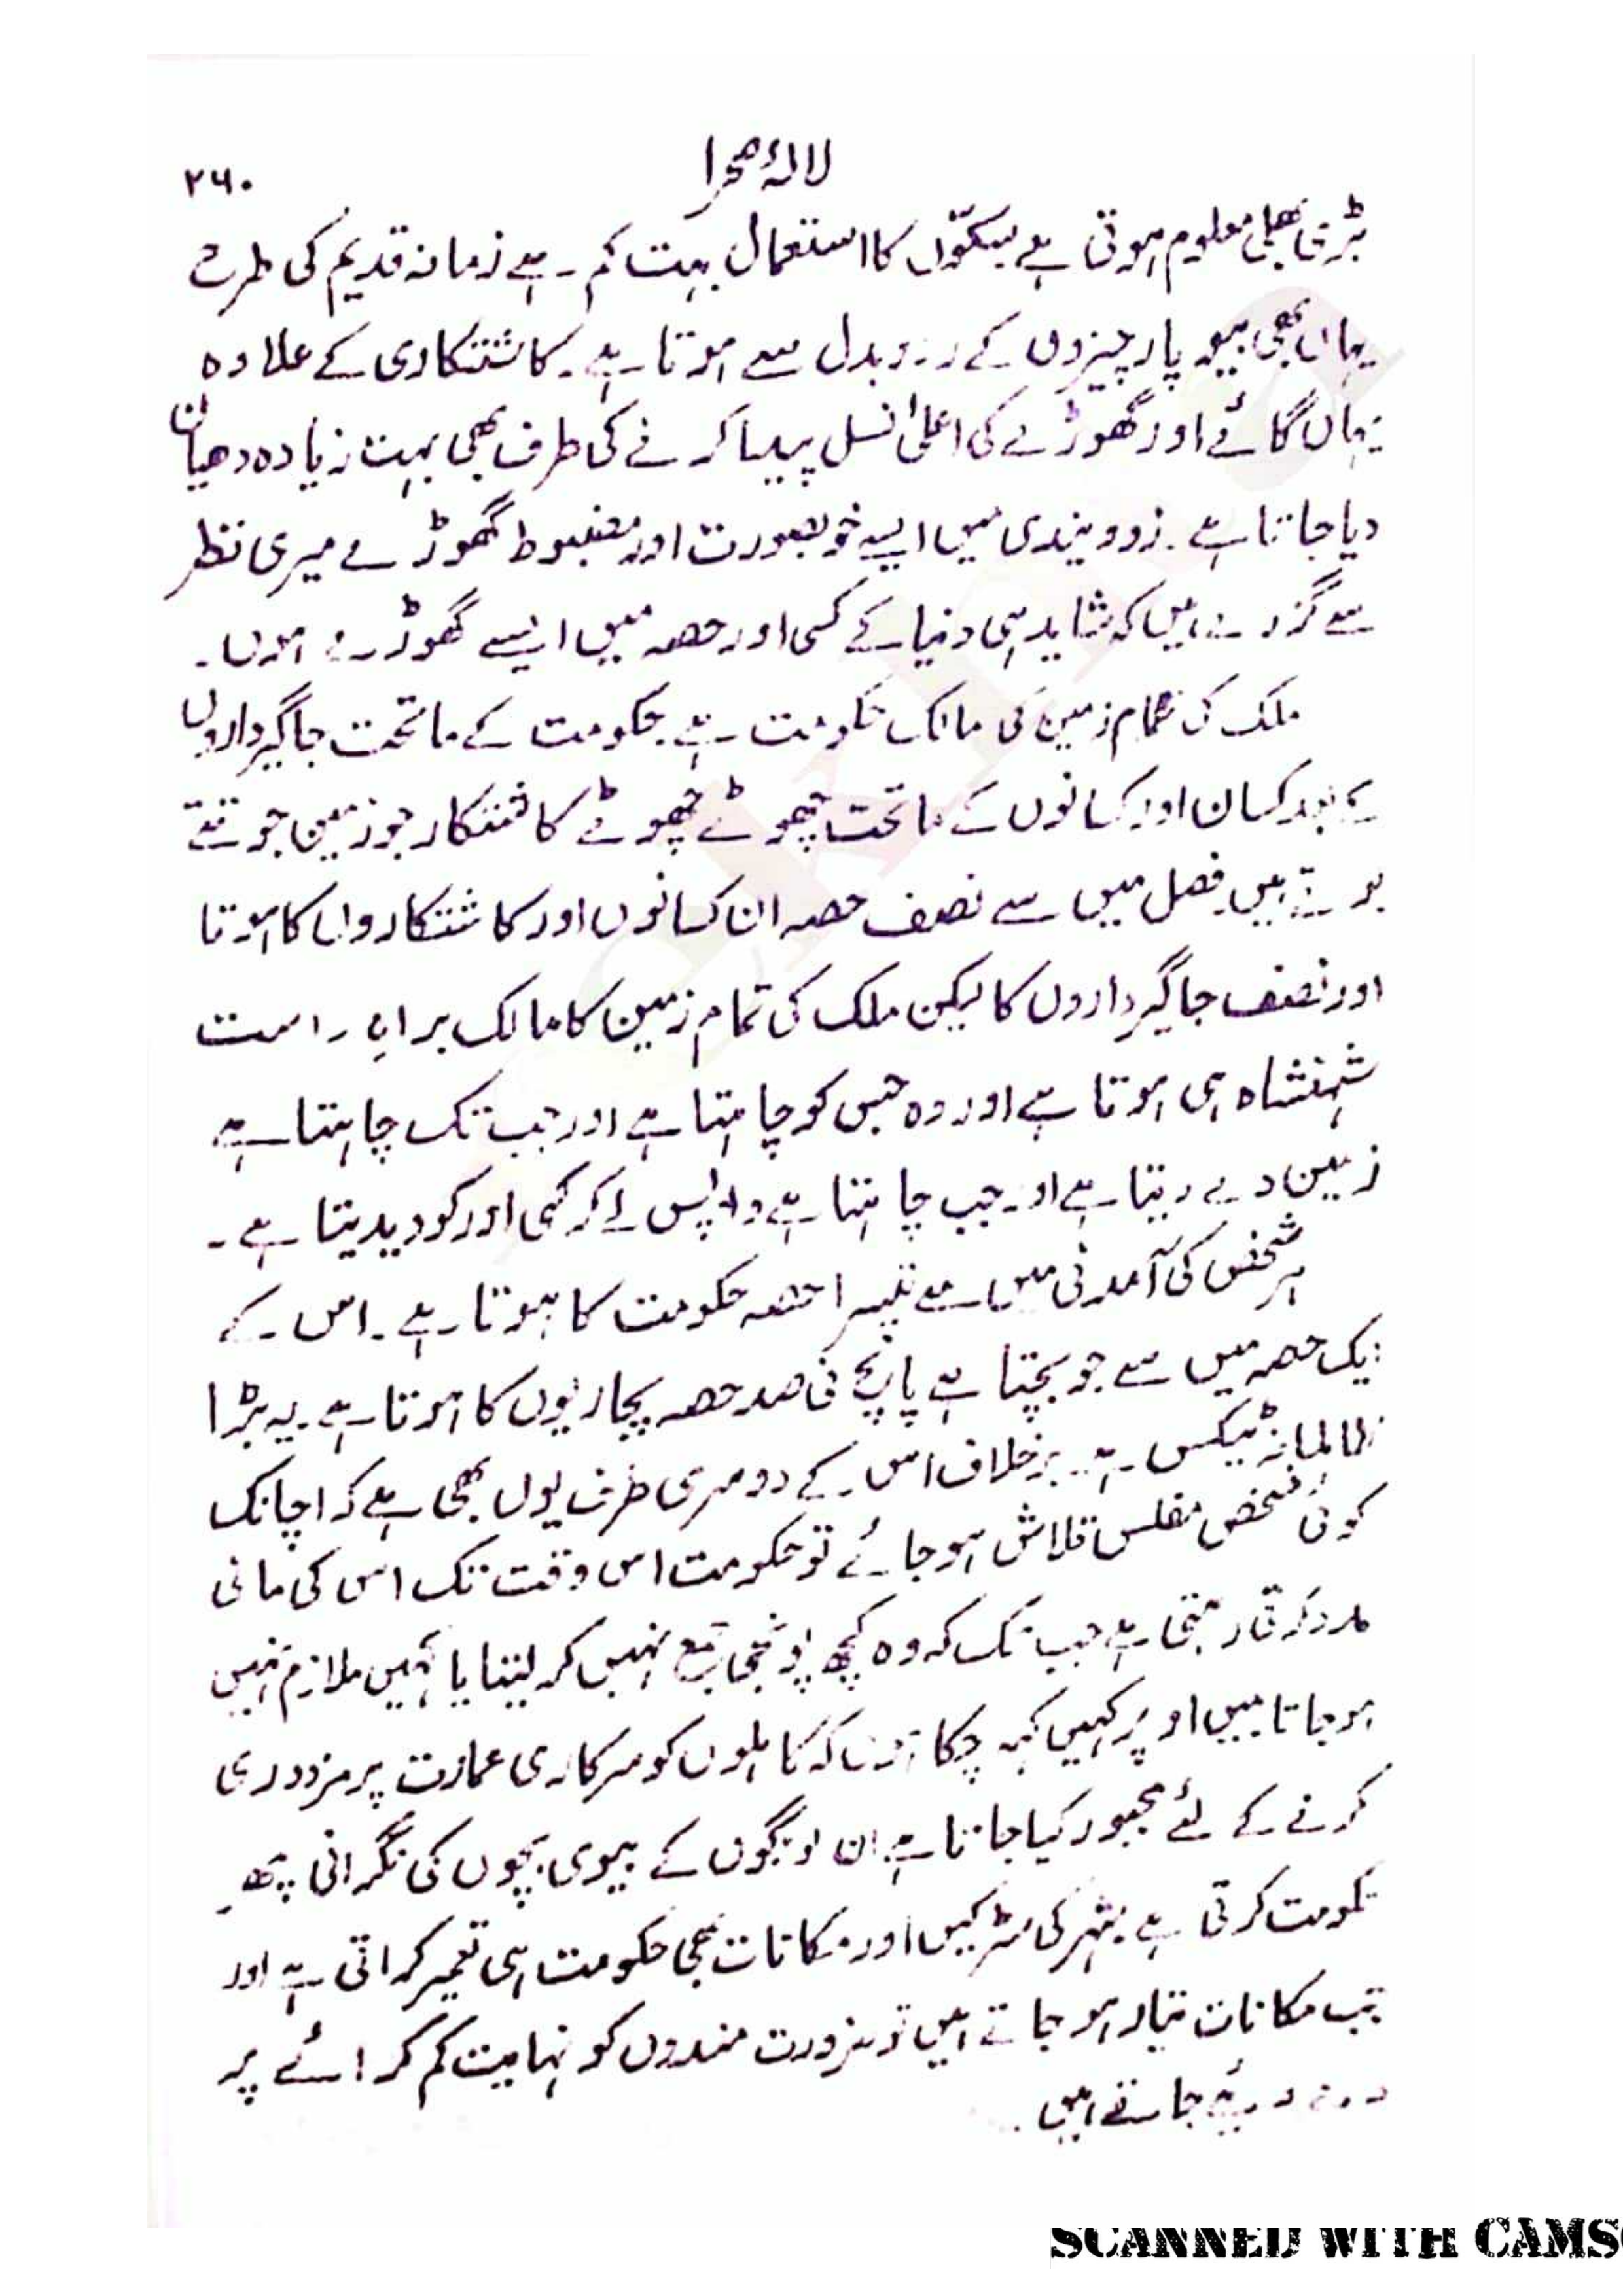 لالۂ صحرا
۲۶۰
بڑی بھلی معلوم ہوتی ہے سکّوں کا استعمال بہت کم ہے زمانہ قدیم کی طرح
یہاں بھی بیوپار چیزوں کے ردوبدل سے ہوتا ہے۔ کاشتکاری کے علاوہ
یہاں گائے اور گھوڑے کی اعلیٰ نسل پیدا کرنے کی طرف بھی بہت زیادہ دھیان
دیا جاتا ہے۔ زووینڈی میں ایسے خوبصورت اور مضبوط گھوڑے میری نظر
سے گزرے ہیں کہ شاید ہی دنیا کے کسی اور حصہ میں ایسے گھوڑے ہوں۔
ملک کی تمام زمین کی مالک حکومت ہے حکومت کے ماتحت جاگیرداروں
کے بعد کسان اور کسانوں کے ماتحت چھوٹے چھوٹے کاشتکار جو زمین جوتتے
بوتے ہیں فصل میں سے نصف حصہ ان کسانوں اور کاشتکاروں کا ہوتا
اور نصف جاگیرداروں کا لیکن ملک کی تمام زمین کا مالک براہِ راست
شہنشاہ ہی ہوتا ہے اور وہ جس کو چاہتا ہے اور جب تک چاہتا ہے
زمین دے دیتا ہے اور جب چاہتا ہے واپس لے کر کسی اور کو دیدیتا ہے۔
ہر شخص کی آمدنی میں سے تیسرا حصہ حکومت کا ہوتا ہے۔ اس کے
ایک حصہ میں سے جو بچتا ہے پانچ فی صد حصہ پجاریوں کا ہوتا ہے۔ یہ بڑا
ظالمانہ ٹیکس ہے۔ برخلاف اس کے دوسری طرف یوں بھی ہے کہ اچانک
کوئی شخص مفلس قلاش ہو جائے تو حکومت اس وقت تک اس کی مالی
مدد کرتی رہتی ہے جب تک کہ وہ کچھ پونجی جمع نہیں کر لیتا یا کہیں ملازم نہیں
ہو جاتا میں اوپر کہیں کہہ چکا ہوں کہ کاہلوں کو سرکاری عمارت پر مزدوری
کرنے کے لئے مجبور کیا جاتا ہے ان لوگوں کے بیوی بچوں کی نگرانی پھر
حکومت کرتی ہے شہر کی سڑکیں اور مکانات بھی حکومت ہی تعمیر کراتی ہے اور
جب مکانات تیار ہو جاتے ہیں تو ضرورت مندوں کو نہایت کم کرائے پر
دے دیئے جاتے ہیں۔
SCANNED WITH CAMS